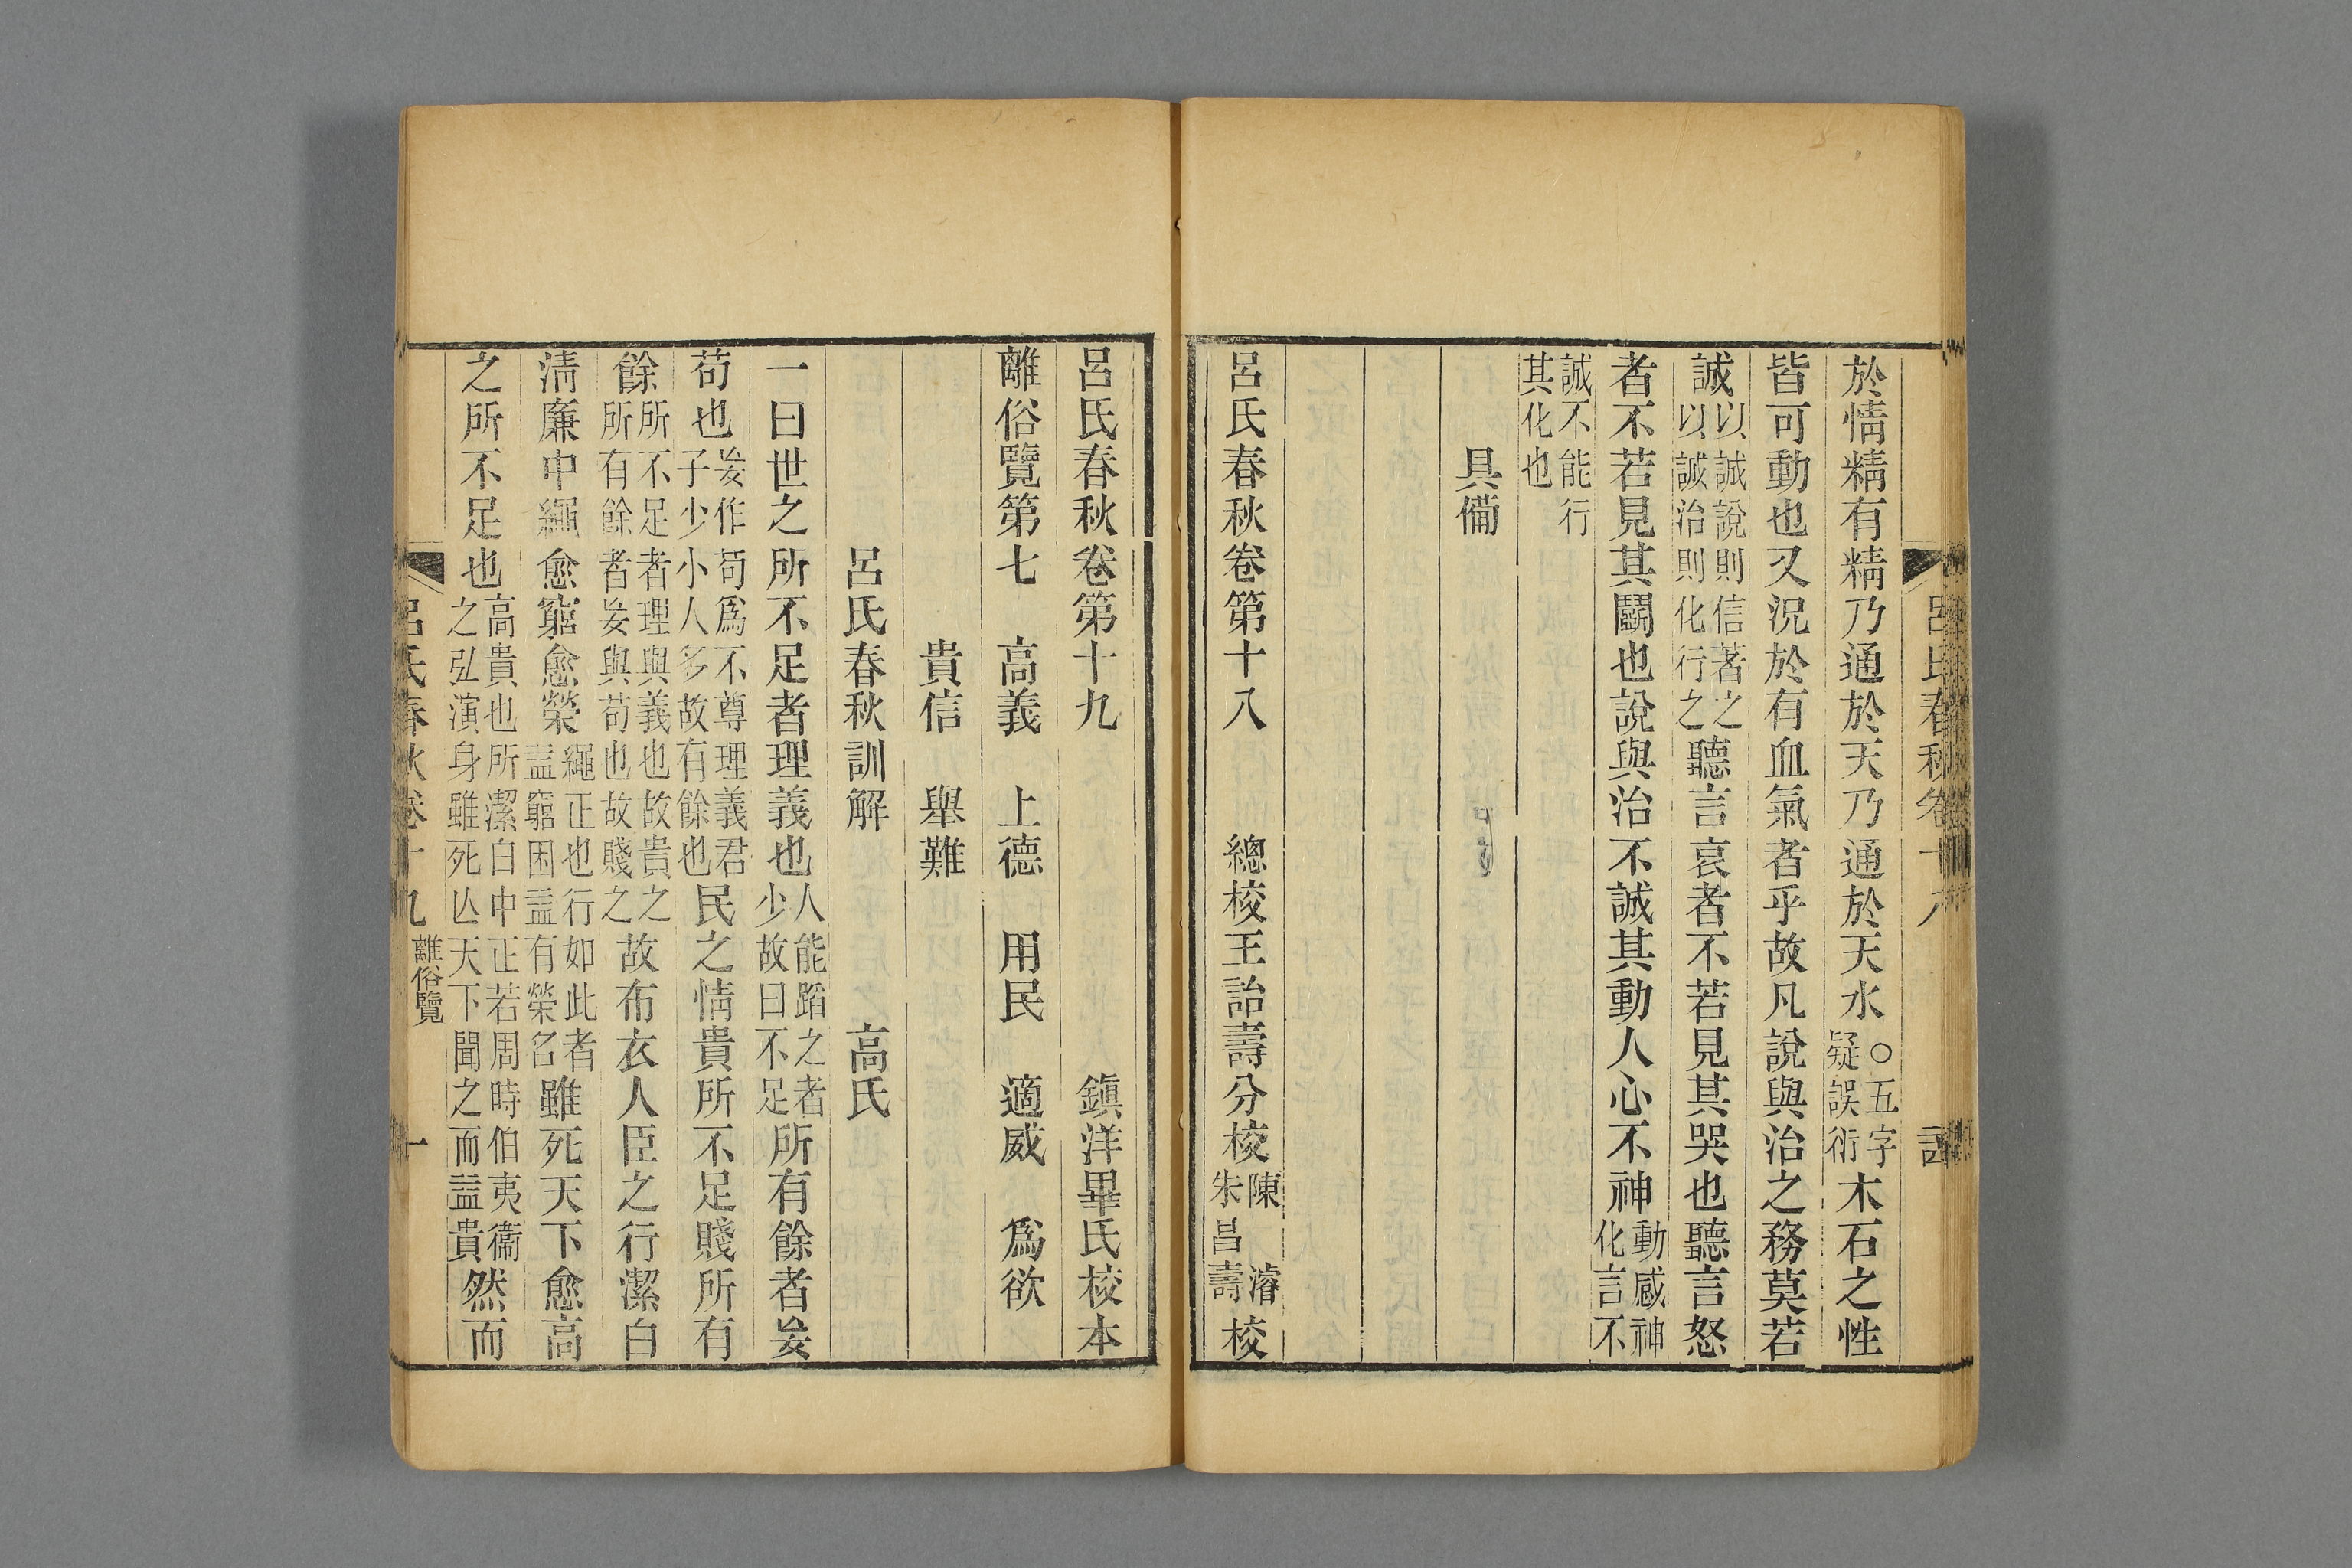 於情精有精乃通於天乃通於天水○五字疑誤衍木石之性
皆可動也又況於有血氣者乎故凡說與治之務莫若
誠以誠說則信著之以誠治則化行之聽言哀者不若見其哭也聽言怒
者不若見其鬭也說與治不誠其動人心不神動感神化言不
誠不能行其化也
具備
呂氏春秋卷第十八 總校王詒壽分校陳濬朱昌壽校
呂氏春秋卷第十九 鎭洋畢氏校本
離俗覽第七 高義 上德 用民 適威 爲欲
貴信 舉難
呂氏春秋訓解 高氏
一曰世之所不足者理義也人能蹈之者少故曰不足所有餘者妄
苟也妄作苟爲不尊理義君子少小人多故有餘也民之情貴所不足賤所有
餘所不足者理與義也故貴之所有餘者妄與苟也故賤之故布衣人臣之行潔白
淸廉中繩愈窮愈榮繩正也行如此者益窮困益有榮名雖死天下愈高
之所不足也高貴也所潔白中正若周時伯夷衞之弘演身雖死亾天下聞之而益貴然而
呂氏春秋卷十九 離俗覽 一